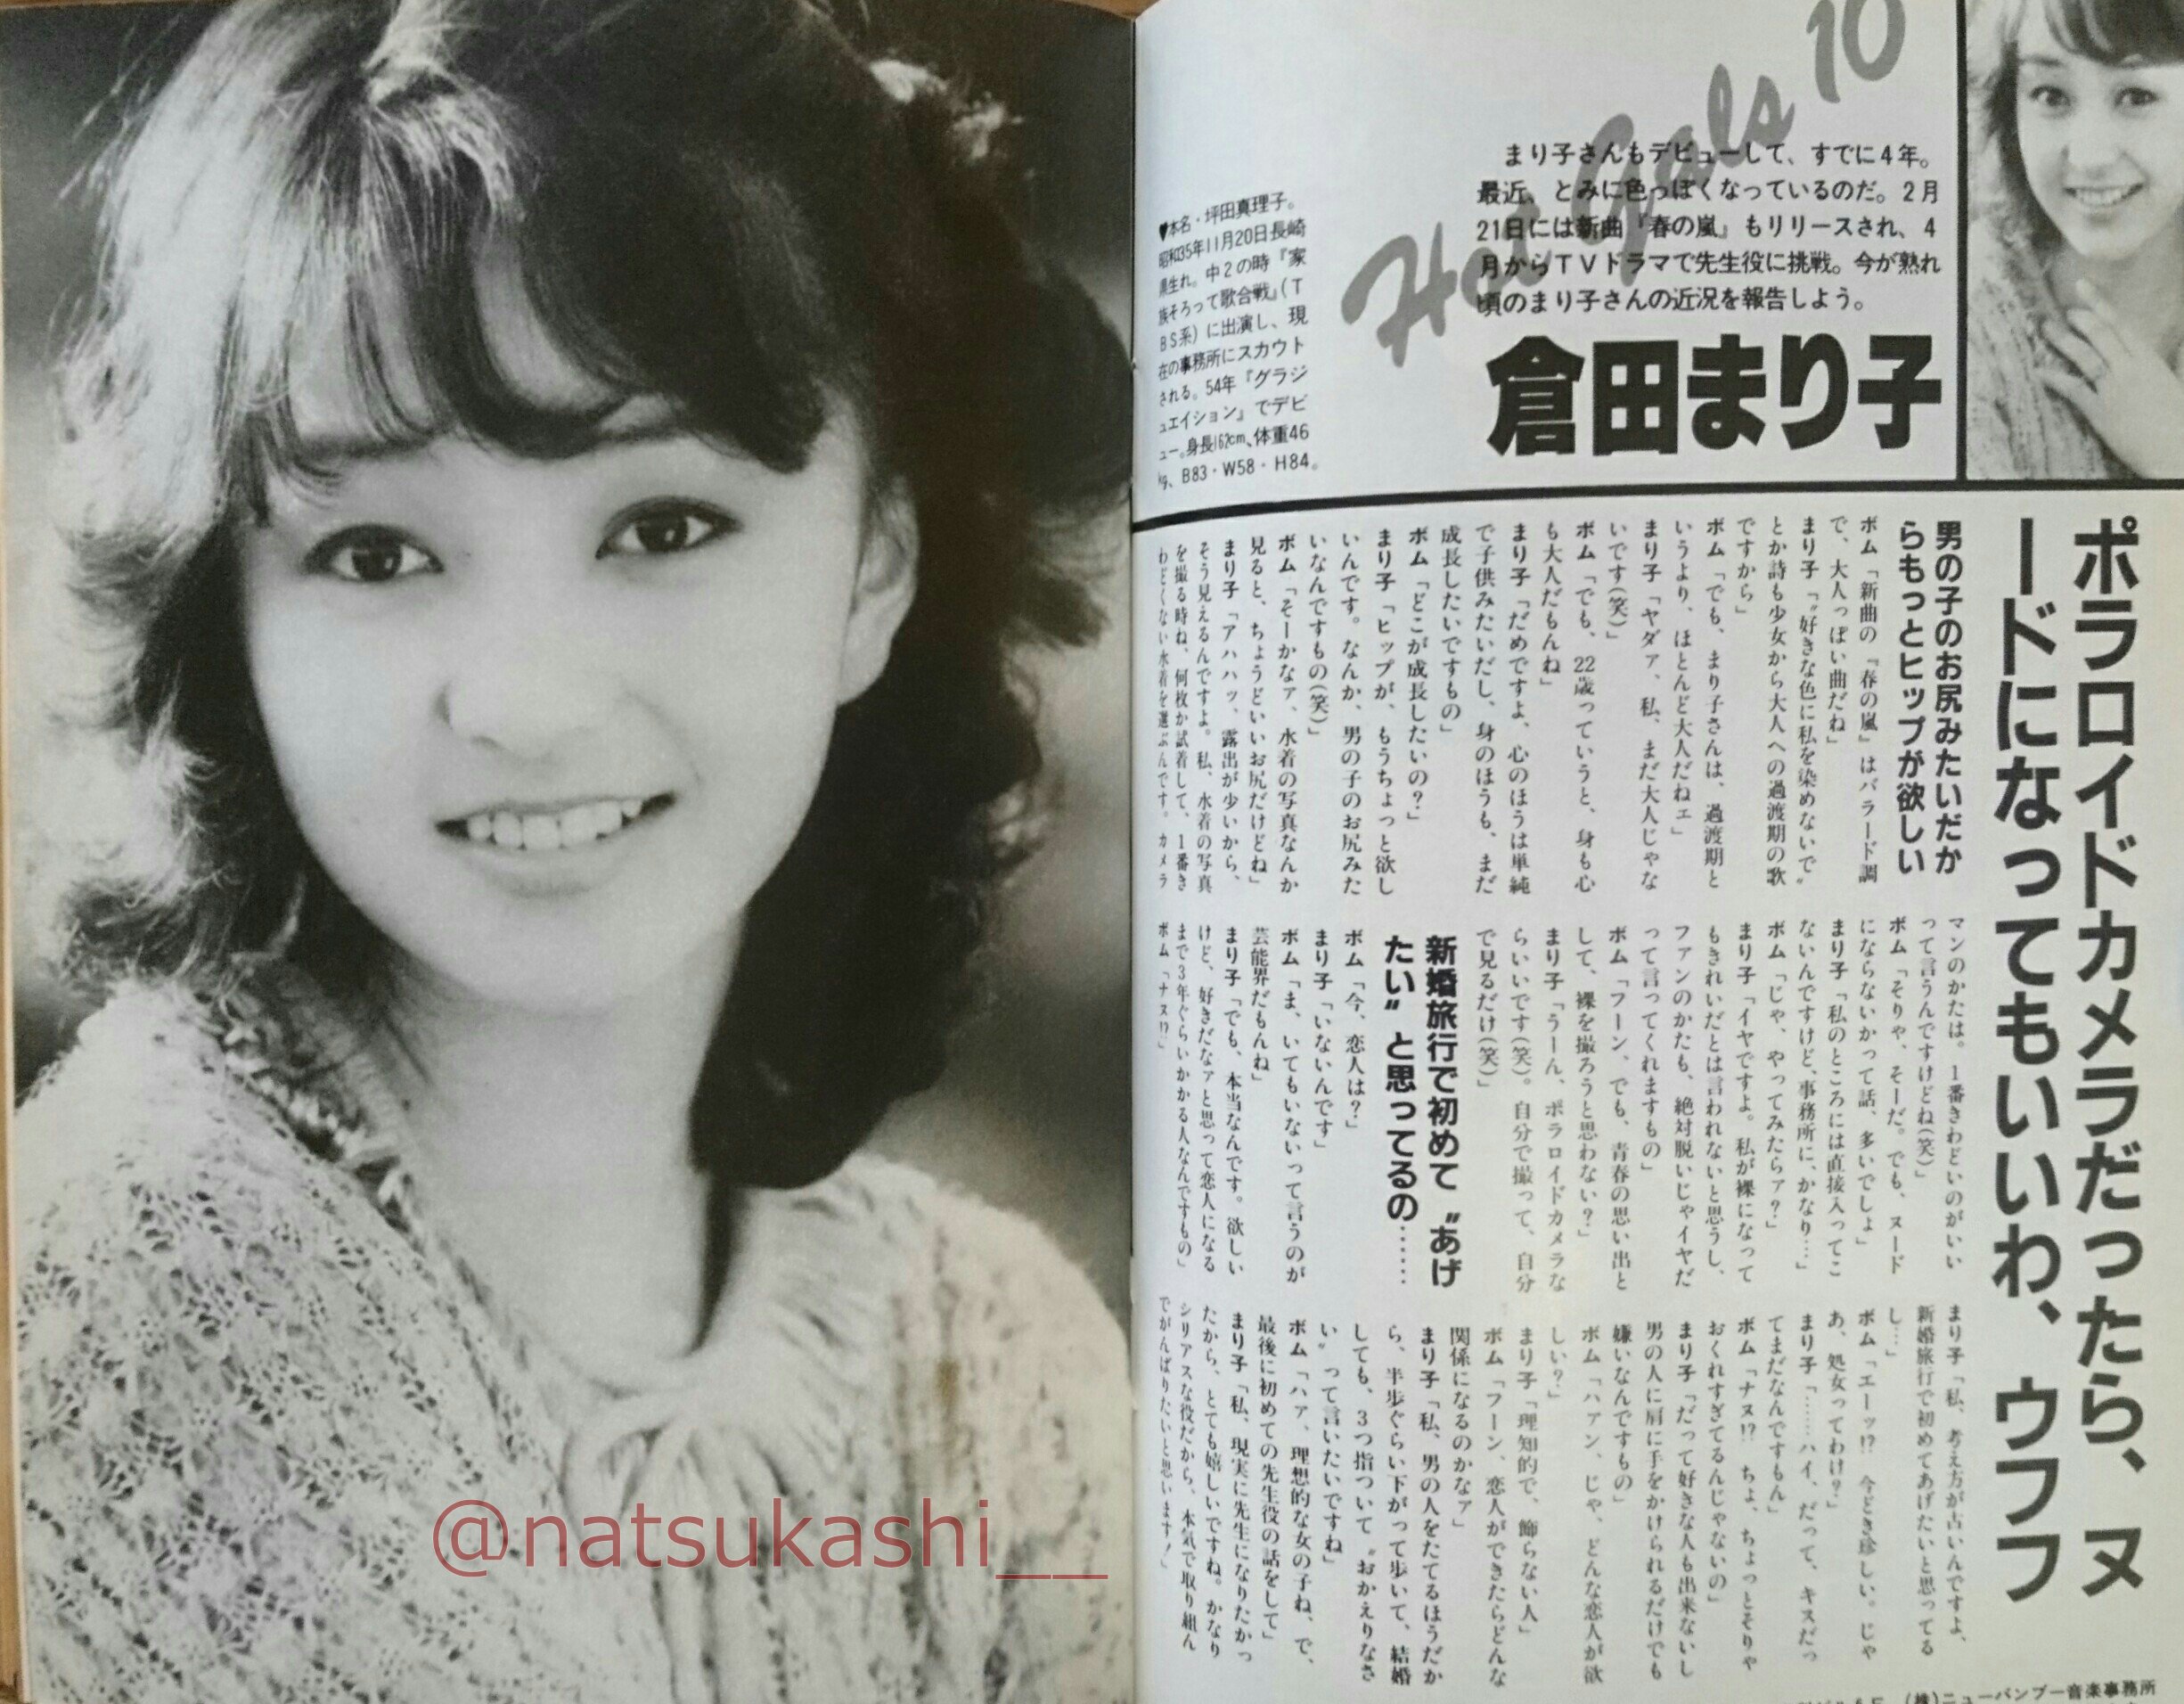 Hot Gals 10
まり子さんもデビューして、すでに4年。
最近、とみに色っぽくなっているのだ。2月
21日には新曲『春の嵐』もリリースされ、4
月からTVドラマで先生役に挑戦。今が熟れ
頃のまり子さんの近況を報告しよう。
倉田まり子
♥本名・坪田真理子。
昭和35年11月20日長崎
県生れ。中2の時『家
族そろって歌合戦』(T
BS系)に出演し、現
在の事務所にスカウト
される。54年『グラジ
ュエイション』でデビ
ュー。身長162cm、体重46
kg、B83・W58・H84。
ポラロイドカメラだったら、ヌ
ードになってもいいわ、ウフフ
男の子のお尻みたいだか
らもっとヒップが欲しい
ボム「新曲の『春の嵐』はバラード調
で、大人っぽい曲だね」
まり子「〝好きな色に私を染めないで〟
とか詩も少女から大人への過渡期の歌
ですから」
ボム「でも、まり子さんは、過渡期と
いうより、ほとんど大人だねェ」
まり子「ヤダァ、私、まだ大人じゃな
いです(笑)」
ボム「でも、22歳っていうと、身も心
も大人だもんね」
まり子「だめですよ、心のほうは単純
で子供みたいだし、身のほうも、まだ
成長したいですもの」
ボム「どこが成長したいの?」
まり子「ヒップが、もうちょっと欲し
いんです。なんか、男の子のお尻みた
いなんですもの(笑)」
ボム「そーかなァ、水着の写真なんか
見ると、ちょうどいいお尻だけどね」
まり子「アハハッ、露出が少いから、
そう見えるんですよ。私、水着の写真
を撮る時ね、何枚か試着して、1番き
わどくない水着を選ぶんです。カメラ
マンのかたは。1番きわどいのがいい
って言うんですけどね(笑)」
ボム「そりゃ、そーだ。でも、ヌード
にならないかって話、多いでしょ」
まり子「私のところには直接入ってこ
ないんですけど、事務所に、かなり…」
ボム「じゃ、やってみたらァ?」
まり子「イヤですよ。私が裸になって
もきれいだとは言われないと思うし、
ファンのかたも、絶対脱いじゃイヤだ
って言ってくれますもの」
ボム「フーン、でも、青春の思い出と
して、裸を撮ろうと思わない?」
まり子「うーん、ポラロイドカメラな
らいいです(笑)。自分で撮って、自分
で見るだけ(笑)」
新婚旅行で初めて〝あげ
たい〟と思ってるの……
ボム「今、恋人は?」
まり子「いないんです」
ボム「ま、いてもいないって言うのが
芸能界だもんね」
まり子「でも、本当なんです。欲しい
けど、好きだなァと思って恋人になる
まで3年ぐらいかかる人なんですもの」
ボム「ナヌ!?」
まり子「私、考え方が古いんですよ、
新婚旅行で初めてあげたいと思ってる
し…」
ボム「エーッ!? 今どき珍しい。じゃ
あ、処女ってわけ?」
まり子「……ハイ、だって、キスだっ
てまだなんですもん」
ボム「ナヌ!? ちょ、ちょっとそりゃ
おくれすぎてるんじゃないの」
まり子「だって好きな人も出来ないし
男の人に肩に手をかけられるだけでも
嫌いなんですもの」
ボム「ハァン、じゃ、どんな恋人が欲
しい?」
まり子「理知的で、飾らない人」
ボム「フーン、恋人ができたらどんな
関係になるのかなァ」
まり子「私、男の人をたてるほうだか
ら、半歩ぐらい下がって歩いて、結婚
しても、3つ指ついて〝おかえりなさ
い〟って言いたいですね」
ボム「ハァ、理想的な女の子ね、で、
最後に初めての先生役の話をして」
まり子「私、現実に先生になりたかっ
たから、とても嬉しいですね。かなり
シリアスな役だから、本気で取り組ん
でがんばりたいと思います!」
(株)ニューバンブー音楽事務所
@natsukashi__